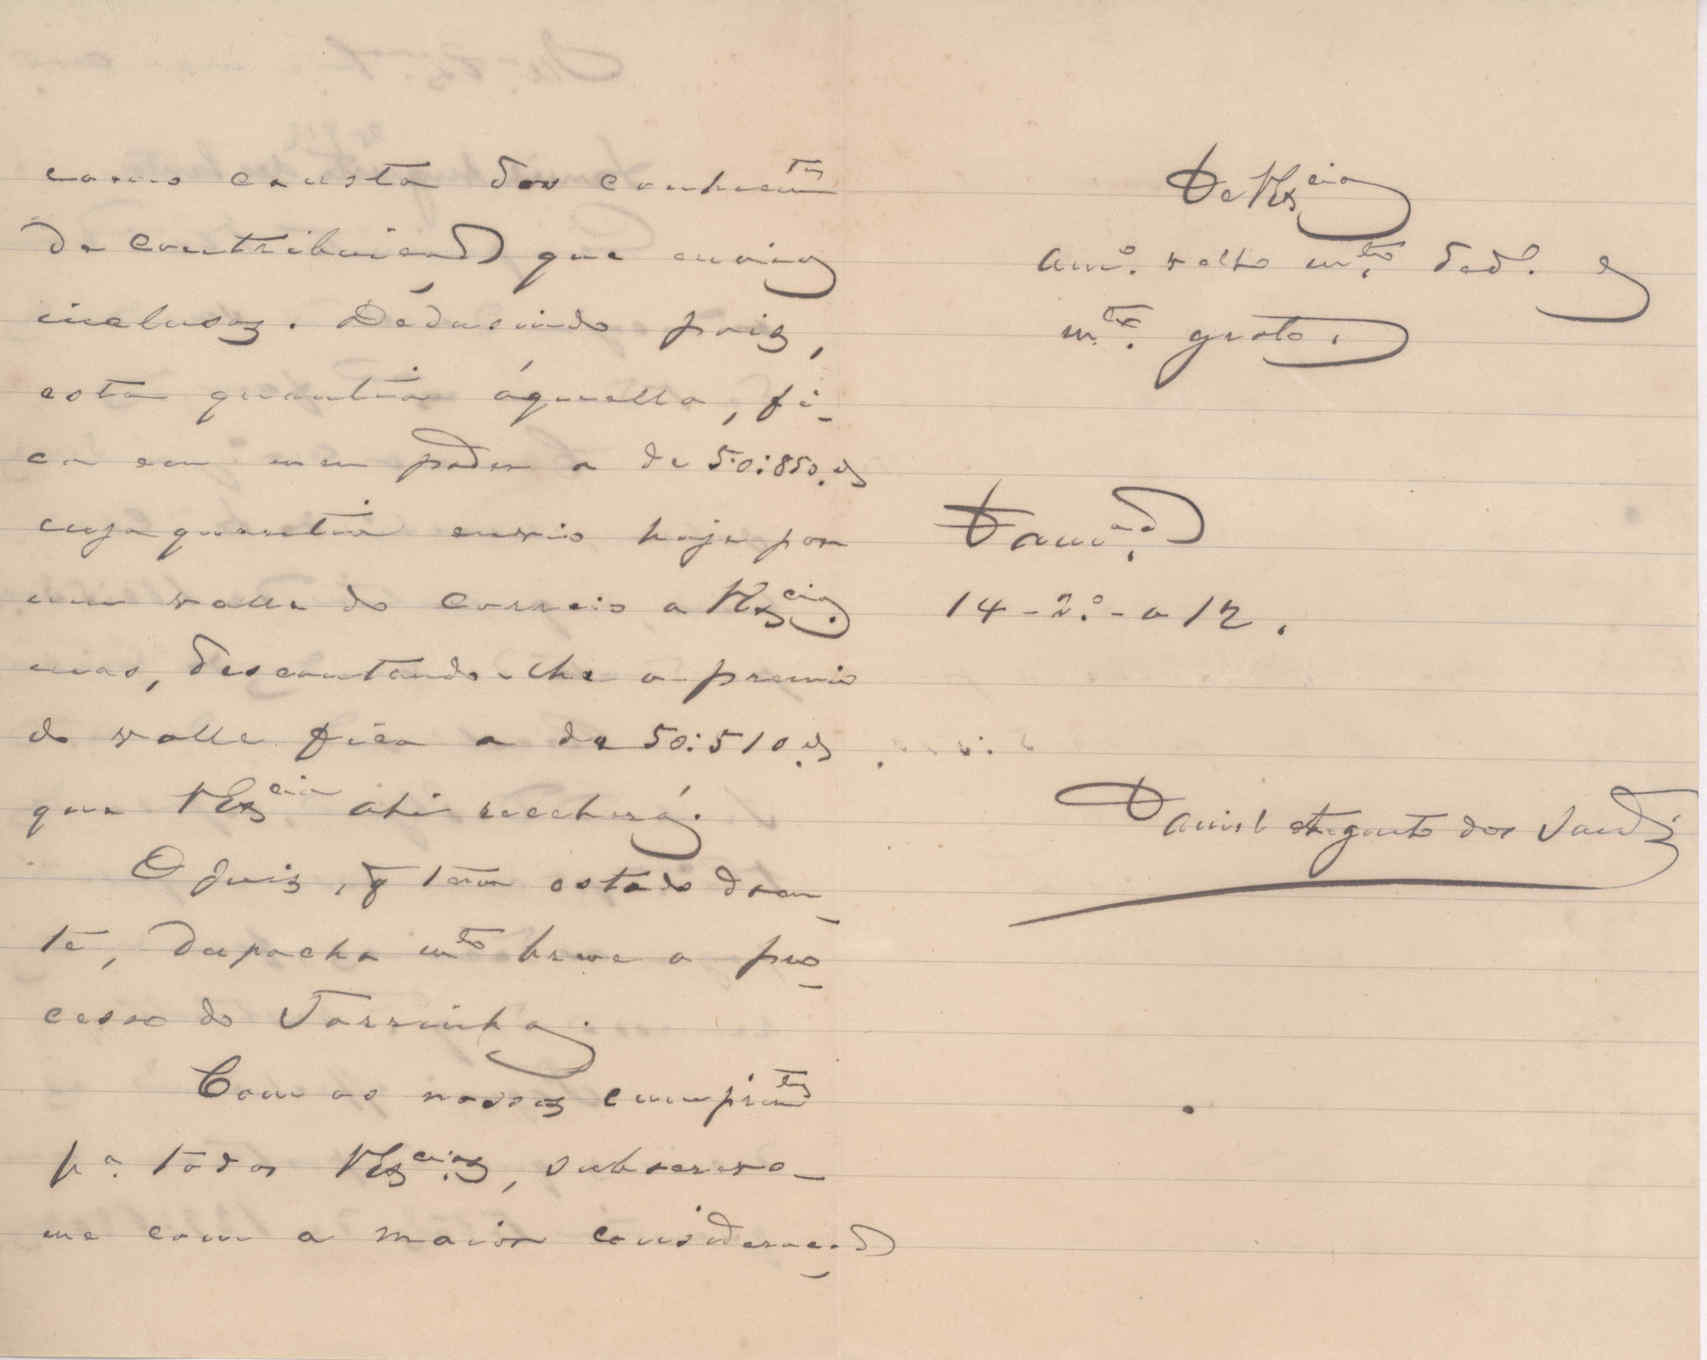 como consta dos conhecim.tos
de contribuição que envio
inclusos. Dedusindo pois,
esta quantia áquella, fi-
ca em meu poder a de 50:850.rs
cuja quantia envio hoje por
um valle do correio a VEx.cia
mas, descontando-lhe o premio
do valle fica a de 50:510.rs
que VEx.cia ahi receberá.
O juiz, q̃ tem estado doen-
te, despacha m.to breve o pro-
cesso do Torrinha.
Com os nossos cumprim.tos
p.a todos VEx.cias, subscrevo-
me com a maior consideração
De VEx.cia
am.o velho m.to ded.o e
m.to grato.
14-2.o-a 12.
Daniel Augusto dos Santos